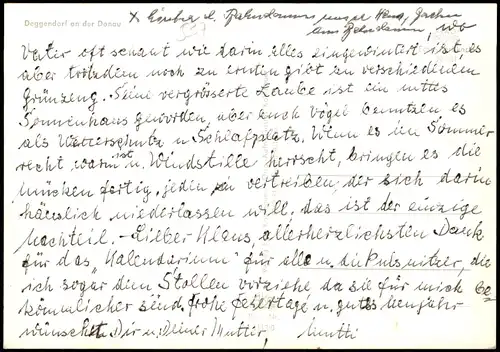 Deggendorf an der Donau
x Einbra d. Bahndamm unser Haus, Garten
am Bahndamm, wo
Vater oft schaut wie darin alles eingewintert ist, es
aber trotzdem noch zu ernten gibt zu verschiedenem
Grünzeug. Seine vergrösserte Laube ist ein nettes
Sonnenhaus geworden, aber auch Vögel benutzen es
als Wetterschutz u. Schlafplatz. Wenn es im Sommer
recht warm ist u. Windstille herrscht, bringen es die
Mücken fertig, jeden zu vertreiben, der sich darin
häuslich niederlassen will, das ist der einzige
Nachteil. - Lieber Klaus, allerherzlichsten Dank
für das "Kalendarium" für alle u. die Pulsnitzer, die
ich sogar dem Stollen vorziehe da sie für mich be
kömmlicher sind. Frohe Feiertage u. gutes Neujahr
wünscht Dir u. Deiner Mutter, Mutti